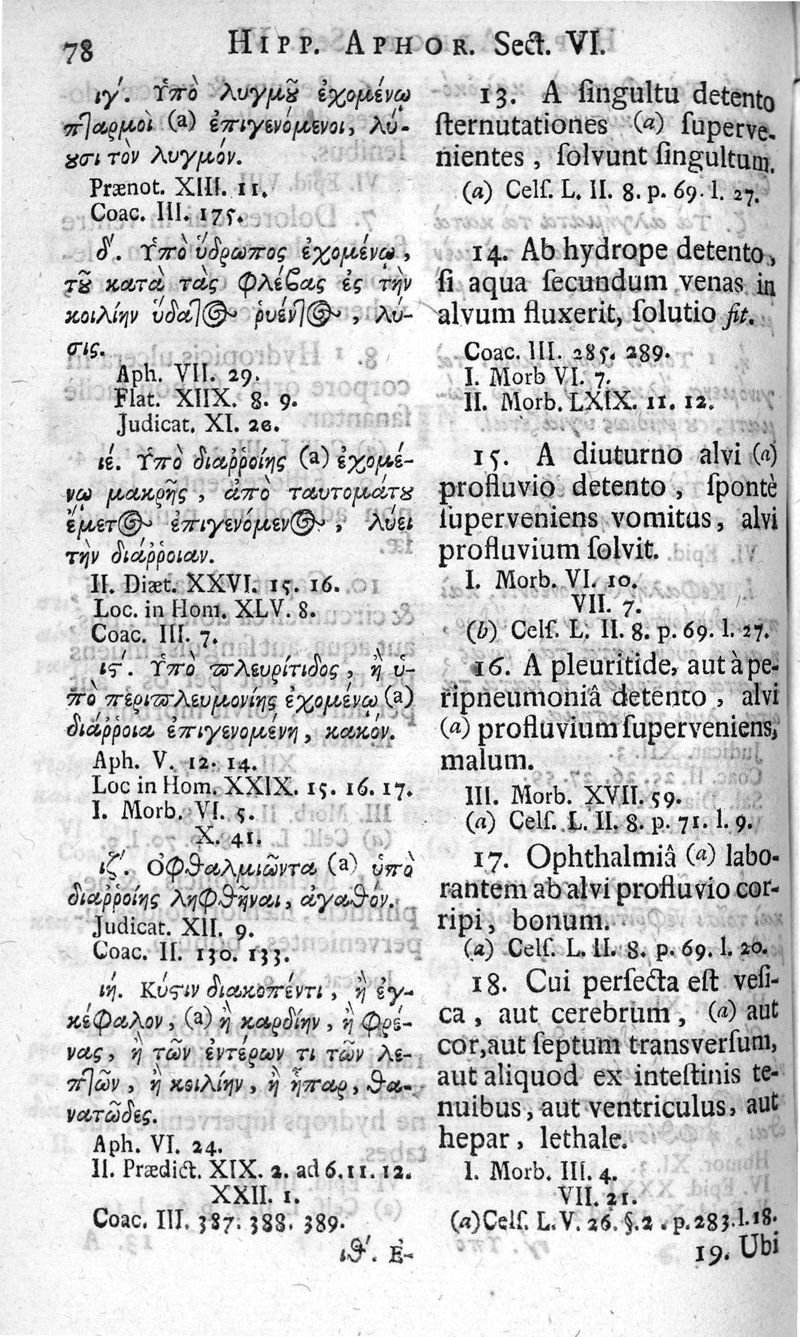 78 HIPP. APHOR. Sect. VI.
ιγ΄. Ὑπὸ λυγμȣ͂ ἐχομένῳ
πταρμοὶ (a) ἐπιγενόμενοι, λύ-
ȣσι τὸν λυγμόν.
Prænot. XIII. 11.
Coac. III. 175.
δ΄. Ὑπὸ ὕδρωπος ἐχομένῳ,
τȣ͂ κατὰ τὰς φλέβας ἐς τὴν
κοιλίην ὕδατος ῥυέντος, λύ-
σις.
Aph. VII. 29.
Flat. XIIX. 8. 9.
Judicat. XI. 20.
ιέ. Ὑπὸ διαῤῥοίης (a) ἐχομέ-
νῳ μακρῆς, ἀπὸ ταυτομάτȣ
ἔμετος ἐπιγενόμενος, λύει
τὴν διάῤῥοιαν.
II. Diæt. XXVI. 15. 16.
Loc. in Hom. XLV. 8.
Coac. III. 7.
ιϛ΄. Ὑπὸ πλευρίτιδος, ἢ ὑ-
πὸ περιπλευμονίης ἐχομένῳ (a)
διάῤῥοια ἐπιγενομένη, κακόν.
Aph. V. 12. 14.
Loc in Hom. XXIX. 15. 16. 17.
I. Morb. VI. 5.
X. 41.
ιζ΄. Ὀφθαλμιῶντα (a) ὑπὸ
διαῤῥοίης ληφθῆναι, ἀγαθόν.
Judicat. XII. 9.
Coac. II. 130. 133.
ιή. Κύϛιν διακοπέντι, ἢ ἐγ-
κέφαλον, (a) ἢ καρδίην, ἢ φρέ-
νας, ἢ τῶν ἐντέρων τι τῶν λε-
πτῶν, ἢ κοιλίην, ἢ ἧπαρ, θα-
νατῶδες.
Aph. VI. 24.
II. Prædict. XIX. 2. ad 6. 11. 12.
XXII. 1.
Coac. III. 387. 388. 389.
ιθ΄. Ἐ-
13. A ſingultu detento
ſternutationes (a) ſuperve-
nientes, ſolvunt ſingultum.
(a) Celſ. L. II. 8. p. 69. l. 27.
14. Ab hydrope detento,
ſi aqua ſecundum venas in
alvum fluxerit, ſolutio fit.
Coac. III. 285. 289.
I. Morb VI. 7.
II. Morb. LXIX. 11. 12.
15. A diuturno alvi (a)
profluvio detento, ſpontè
ſuperveniens vomitus, alvi
profluvium ſolvit.
I. Morb. VI. 10.
VII. 7.
(b) Celſ. L. II. 8. p. 69. l. 27.
16. A pleuritide, aut à pe-
ripneumoniâ detento, alvi
(a) profluvium ſuperveniens,
malum.
III. Morb. XVII. 59.
(a) Celſ. L. II. 8. p. 71. l. 9.
17. Ophthalmiâ (a) labo-
rantem ab alvi profluvio cor-
ripi, bonum.
(a) Celſ. L. II. 8. p. 69. l. 20.
18. Cui perfecta eſt veſi-
ca, aut cerebrum, (a) aut
cor, aut ſeptum transverſum,
aut aliquod ex inteſtinis te-
nuibus, aut ventriculus, aut
hepar, lethale.
I. Morb. III. 4.
VII. 21.
(a) Celſ. L. V. 26. §. 2. p. 283. l. 18.
19. Ubi